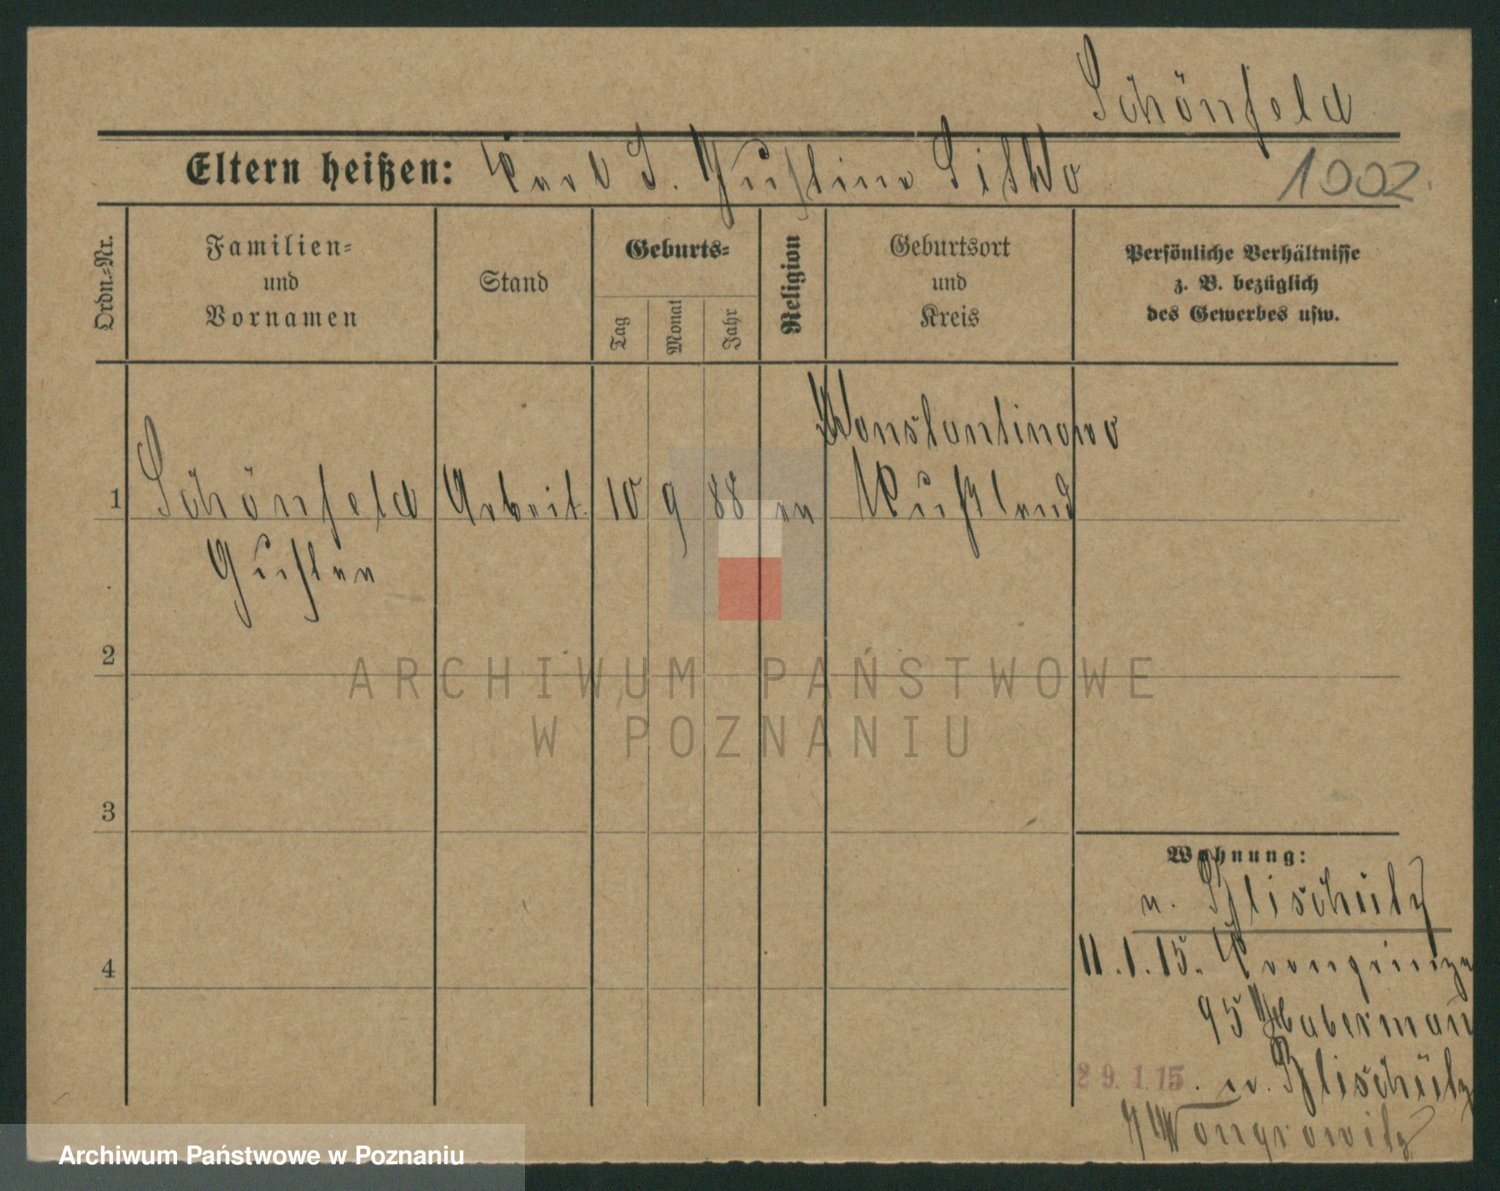 Schönfeld
Eltern heißen: Karl u. Justine
1002.
Ordn.-Nr.
Familien-
und
Vornamen
Stand
Geburts-
Tag
Monat
Jahr
Religion
Geburtsort
und
Kreis
Persönliche Verhältnisse
z. B. bezüglich
des Gewerbes usw.
Konstantinowo
1 Schönfeld Arbeit. 10 9 88 ev Rußland
Gustav
2
3
4
Wohnung:
n.
11.1.15. Kronprinz
95 Haberman
29.1.15. n.
Wongrowitz
ARCHIWUM PAŃSTWOWE
W POZNANIU
Archiwum Państwowe w Poznaniu